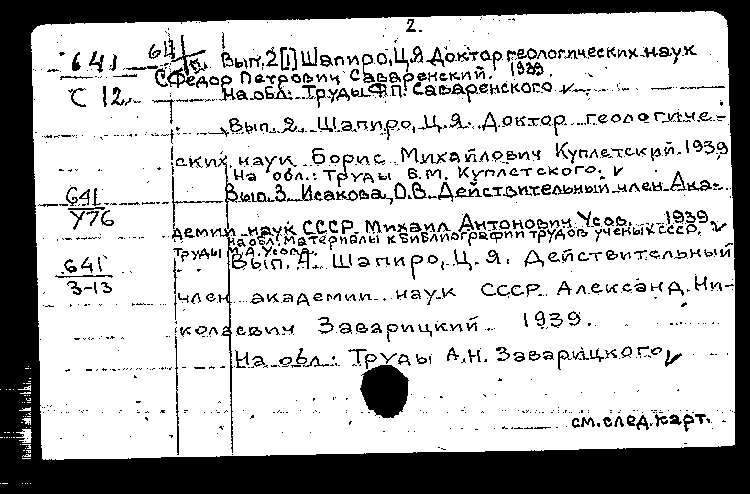 2.
641 Вып. 2[1] Шапиро, Ц.Я. Доктор геологических наук
С 12 Федор Петрович Саваренский. 1939.
На обл: Труды Ф.П. Саваренского ✓
Вып. 2. Шапиро, Ц.Я. Доктор геологиче-
ских наук Борис Михайлович Куплетский. 1939
На обл.: Труды Б.М. Куплетского. ✓
641 Вып. 3. Исакова, О.В. Действительный член Ака-
У76 демии наук СССР Михаил Антонович Усов. 1939.
На обл: Материалы к библиографии трудов ученых СССР, ✓
Труды М.А. Усова.
641 Вып. 4. Шапиро, Ц.Я. Действительный
З-13 член академии наук СССР Александ. Ни-
колаевич Заварицкий 1939.
На обл: Труды А.Н. Заварицкого ✓
см. след. карт.